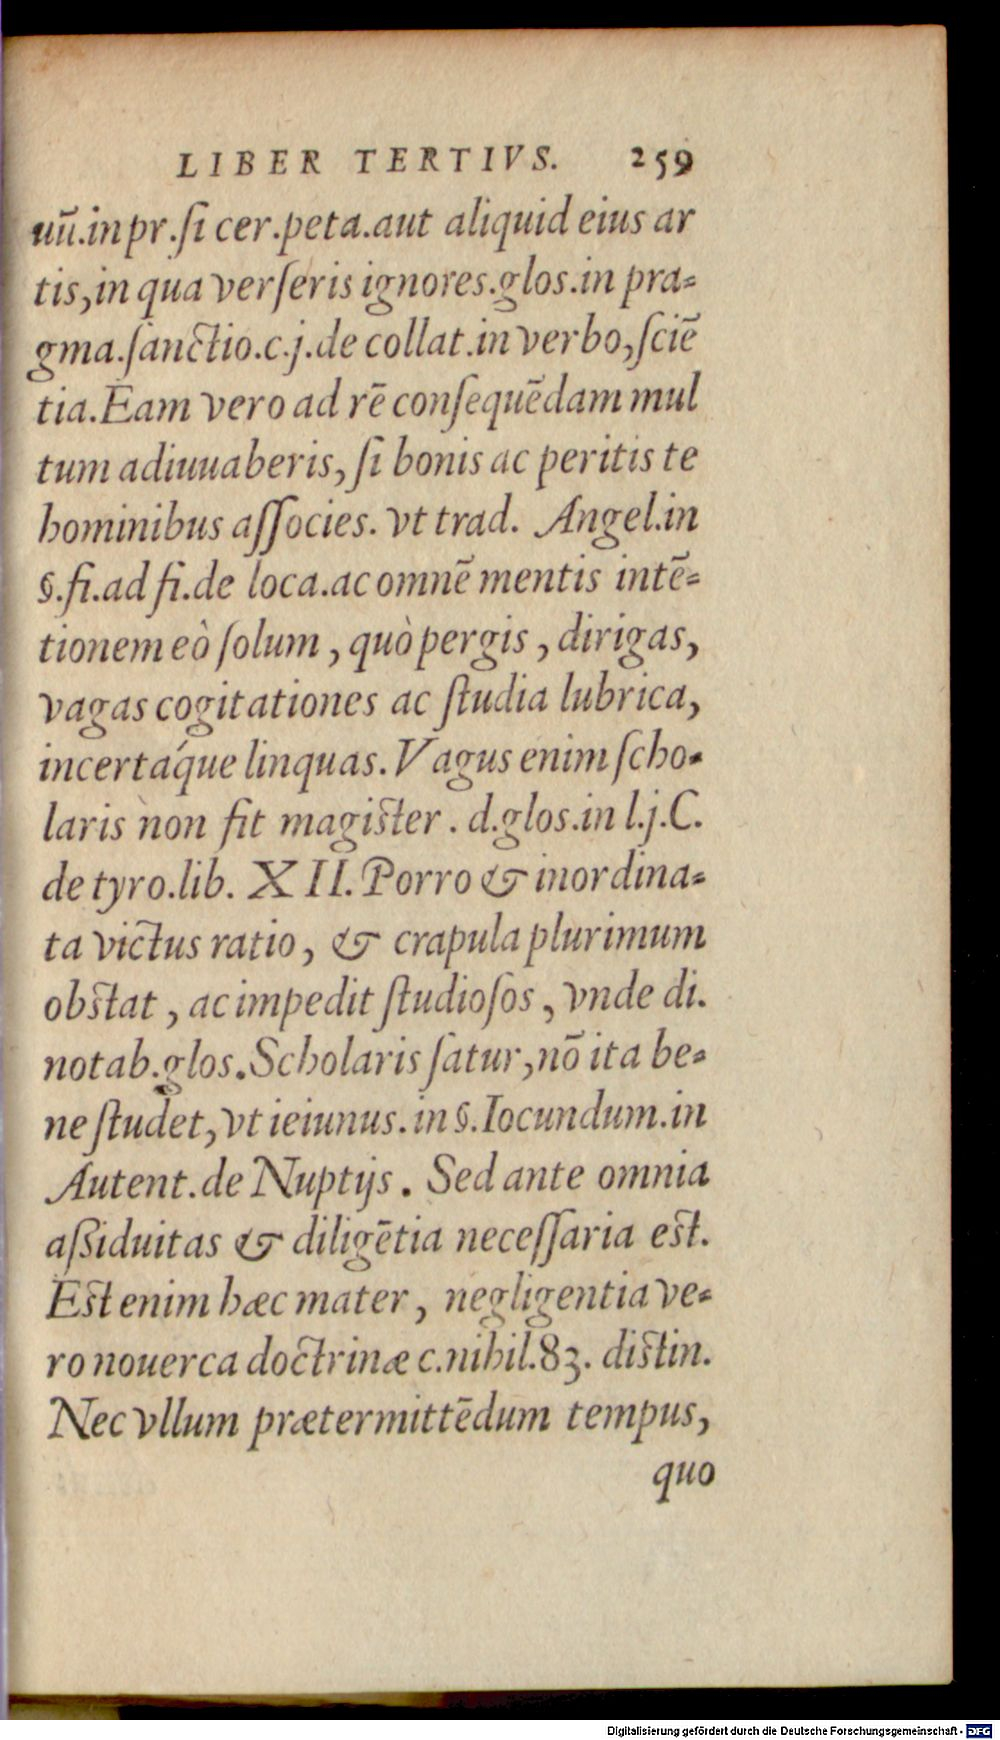 LIBER TERTIVS. 259
uū.in pr.ſi cer.peta.aut aliquid eius ar
tis,in qua verſeris ignores.glos.in pra=
gma.ſanctio.c.j.de collat.in verbo,ſciē
tia.Eam vero ad rē conſequēdam mul
tum adiuuaberis, ſi bonis ac peritis te
hominibus aſſocies. vt trad. Angel.in
§.fi.ad fi.de loca.ac omnē mentis intē=
tionem eò ſolum , quò pergis , dirigas,
vagas cogitationes ac ſtudia lubrica,
incertáque linquas. Vagus enim ſcho=
laris non fit magister . d.glos.in l.j.C.
de tyro.lib. XII. Porro & inordina=
ta victus ratio, & crapula plurimum
obstat , ac impedit ſtudioſos , vnde di.
notab.glos.Scholaris ſatur,nō ita be=
ne ſtudet, vt ieiunus. in §.Iocundum.in
Autent.de Nuptijs . Sed ante omnia
aßiduitas & diligētia neceſſaria est.
Est enim hæc mater , negligentia ve=
ro nouerca doctrinæ c.nihil.83. distin.
Nec vllum prætermittēdum tempus,
quo
Digitalisierung gefördert durch die Deutsche Forschungsgemeinschaft - DFG